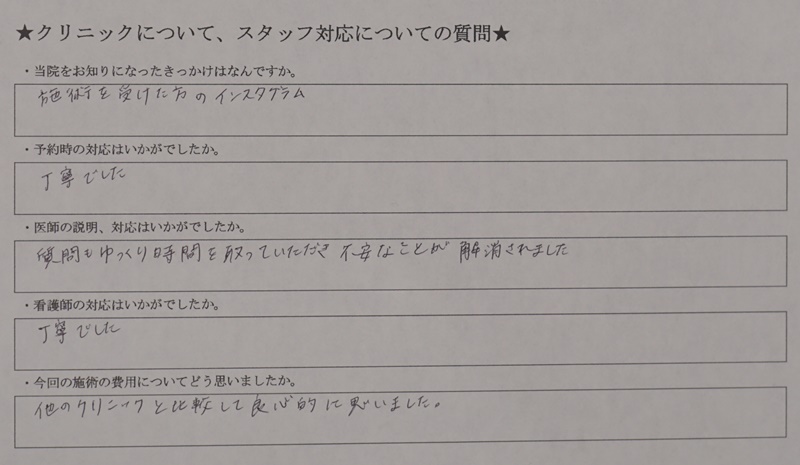 ★クリニックについて、スタッフ対応についての質問★
・当院をお知りになったきっかけはなんですか。
施術を受けた方のインスタグラム
・予約時の対応はいかがでしたか。
丁寧でした
・医師の説明、対応はいかがでしたか。
質問もゆっくり時間を取っていただき不安なことが解消されました
・看護師の対応はいかがでしたか。
丁寧でした
・今回の施術の費用についてどう思いましたか。
他のクリニックと比較して良心的に思いました。